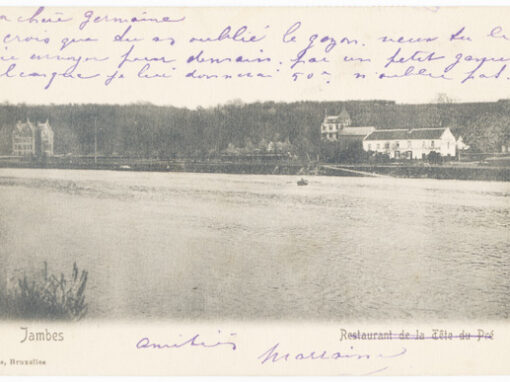 a chère Germaine
crois que du as oublié le gazon. veux tu le
envoyer pour demain. par un petit
quelconque je lui donnerai 50 n'oublie pas.
Jambes
Restaurant de la Tête du Pré
amitiés
s, Bruxelles